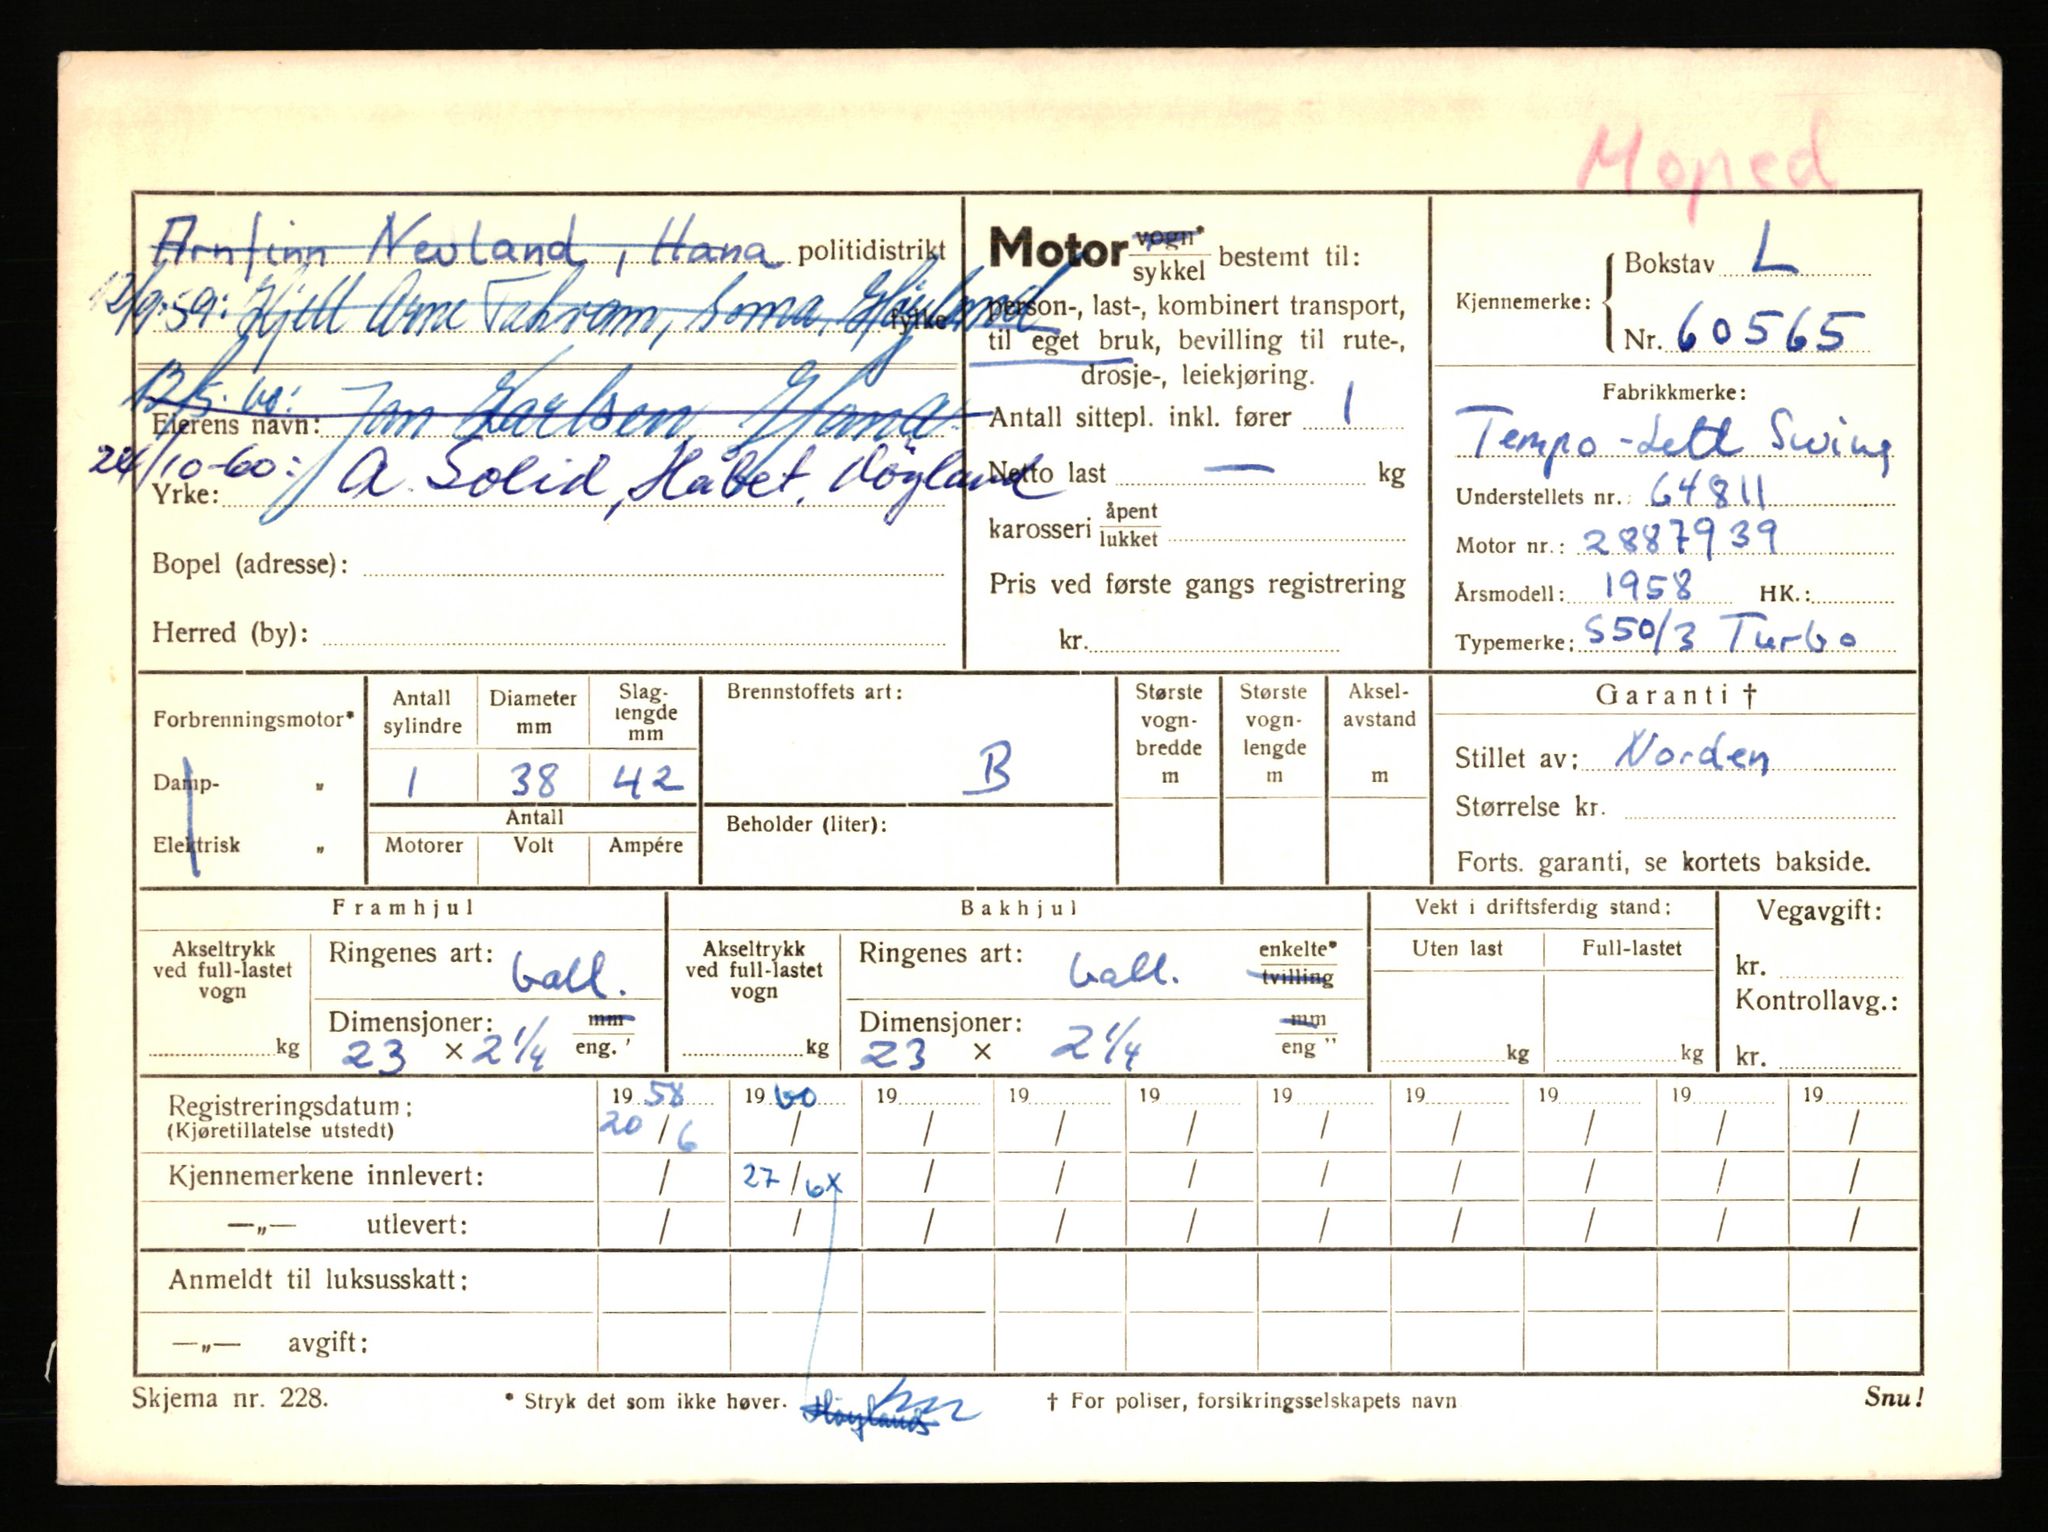 Moped
Arnfinn Nevland, Hana politidistrikt
12/9-59: Kjell Arne Soma, Høyland fylke
12/5-60: Jan Karlsen, Gand
Eierens navn:
24/10-60: A. Solid, Håbet, Høyland
Yrke:
Bopel (adresse):
Herred (by):
Motor vogn* / sykkel bestemt til:
person-, last-, kombinert transport,
til eget bruk, bevilling til rute-,
drosje-, leiekjøring.
Antall sittepl. inkl. fører 1
Netto last — kg
karosseri åpent / lukket
Pris ved første gangs registrering
kr.
Kjennemerke: Bokstav L
Nr. 60565
Fabrikkmerke:
Tempo-Lett Swing
Understellets nr.: 64811
Motor nr.: 2887939
Årsmodell: 1958 HK.:
Typemerke: S50/3 Turbo
Forbrenningsmotor*
Damp- „
Elektrisk „
Antall sylindre
Diameter mm
Slaglengde mm
1 38 42
Antall
Motorer Volt Ampére
Brennstoffets art:
B
Beholder (liter):
Største vognbredde m
Største vognlengde m
Akselavstand m
Garanti †
Stillet av: Norden
Størrelse kr.
Forts. garanti, se kortets bakside.
Framhjul
Akseltrykk ved full-lastet vogn
kg
Ringenes art: ball.
Dimensjoner: mm
23 × 2 1/4 eng. '
Bakhjul
Akseltrykk ved full-lastet vogn
kg
Ringenes art: ball. enkelte* / tvilling
Dimensjoner: mm
23 × 2 1/4 eng "
Vekt i driftsferdig stand:
Uten last Full-lastet
kg kg
Vegavgift:
kr.
Kontrollavg.:
kr.
Registreringsdatum: 19 58 19 60 19 19 19 19 19 19 19 19
(Kjøretillatelse utstedt) 20/6 / / / / / / / / /
Kjennemerkene innlevert: / 27/6 x / / / / / / / /
—„— utlevert: / / / / / / / / / /
Anmeldt til luksusskatt:
—„— avgift:
Skjema nr. 228. * Stryk det som ikke høver. † For poliser, forsikringsselskapets navn Snu!
Høylands